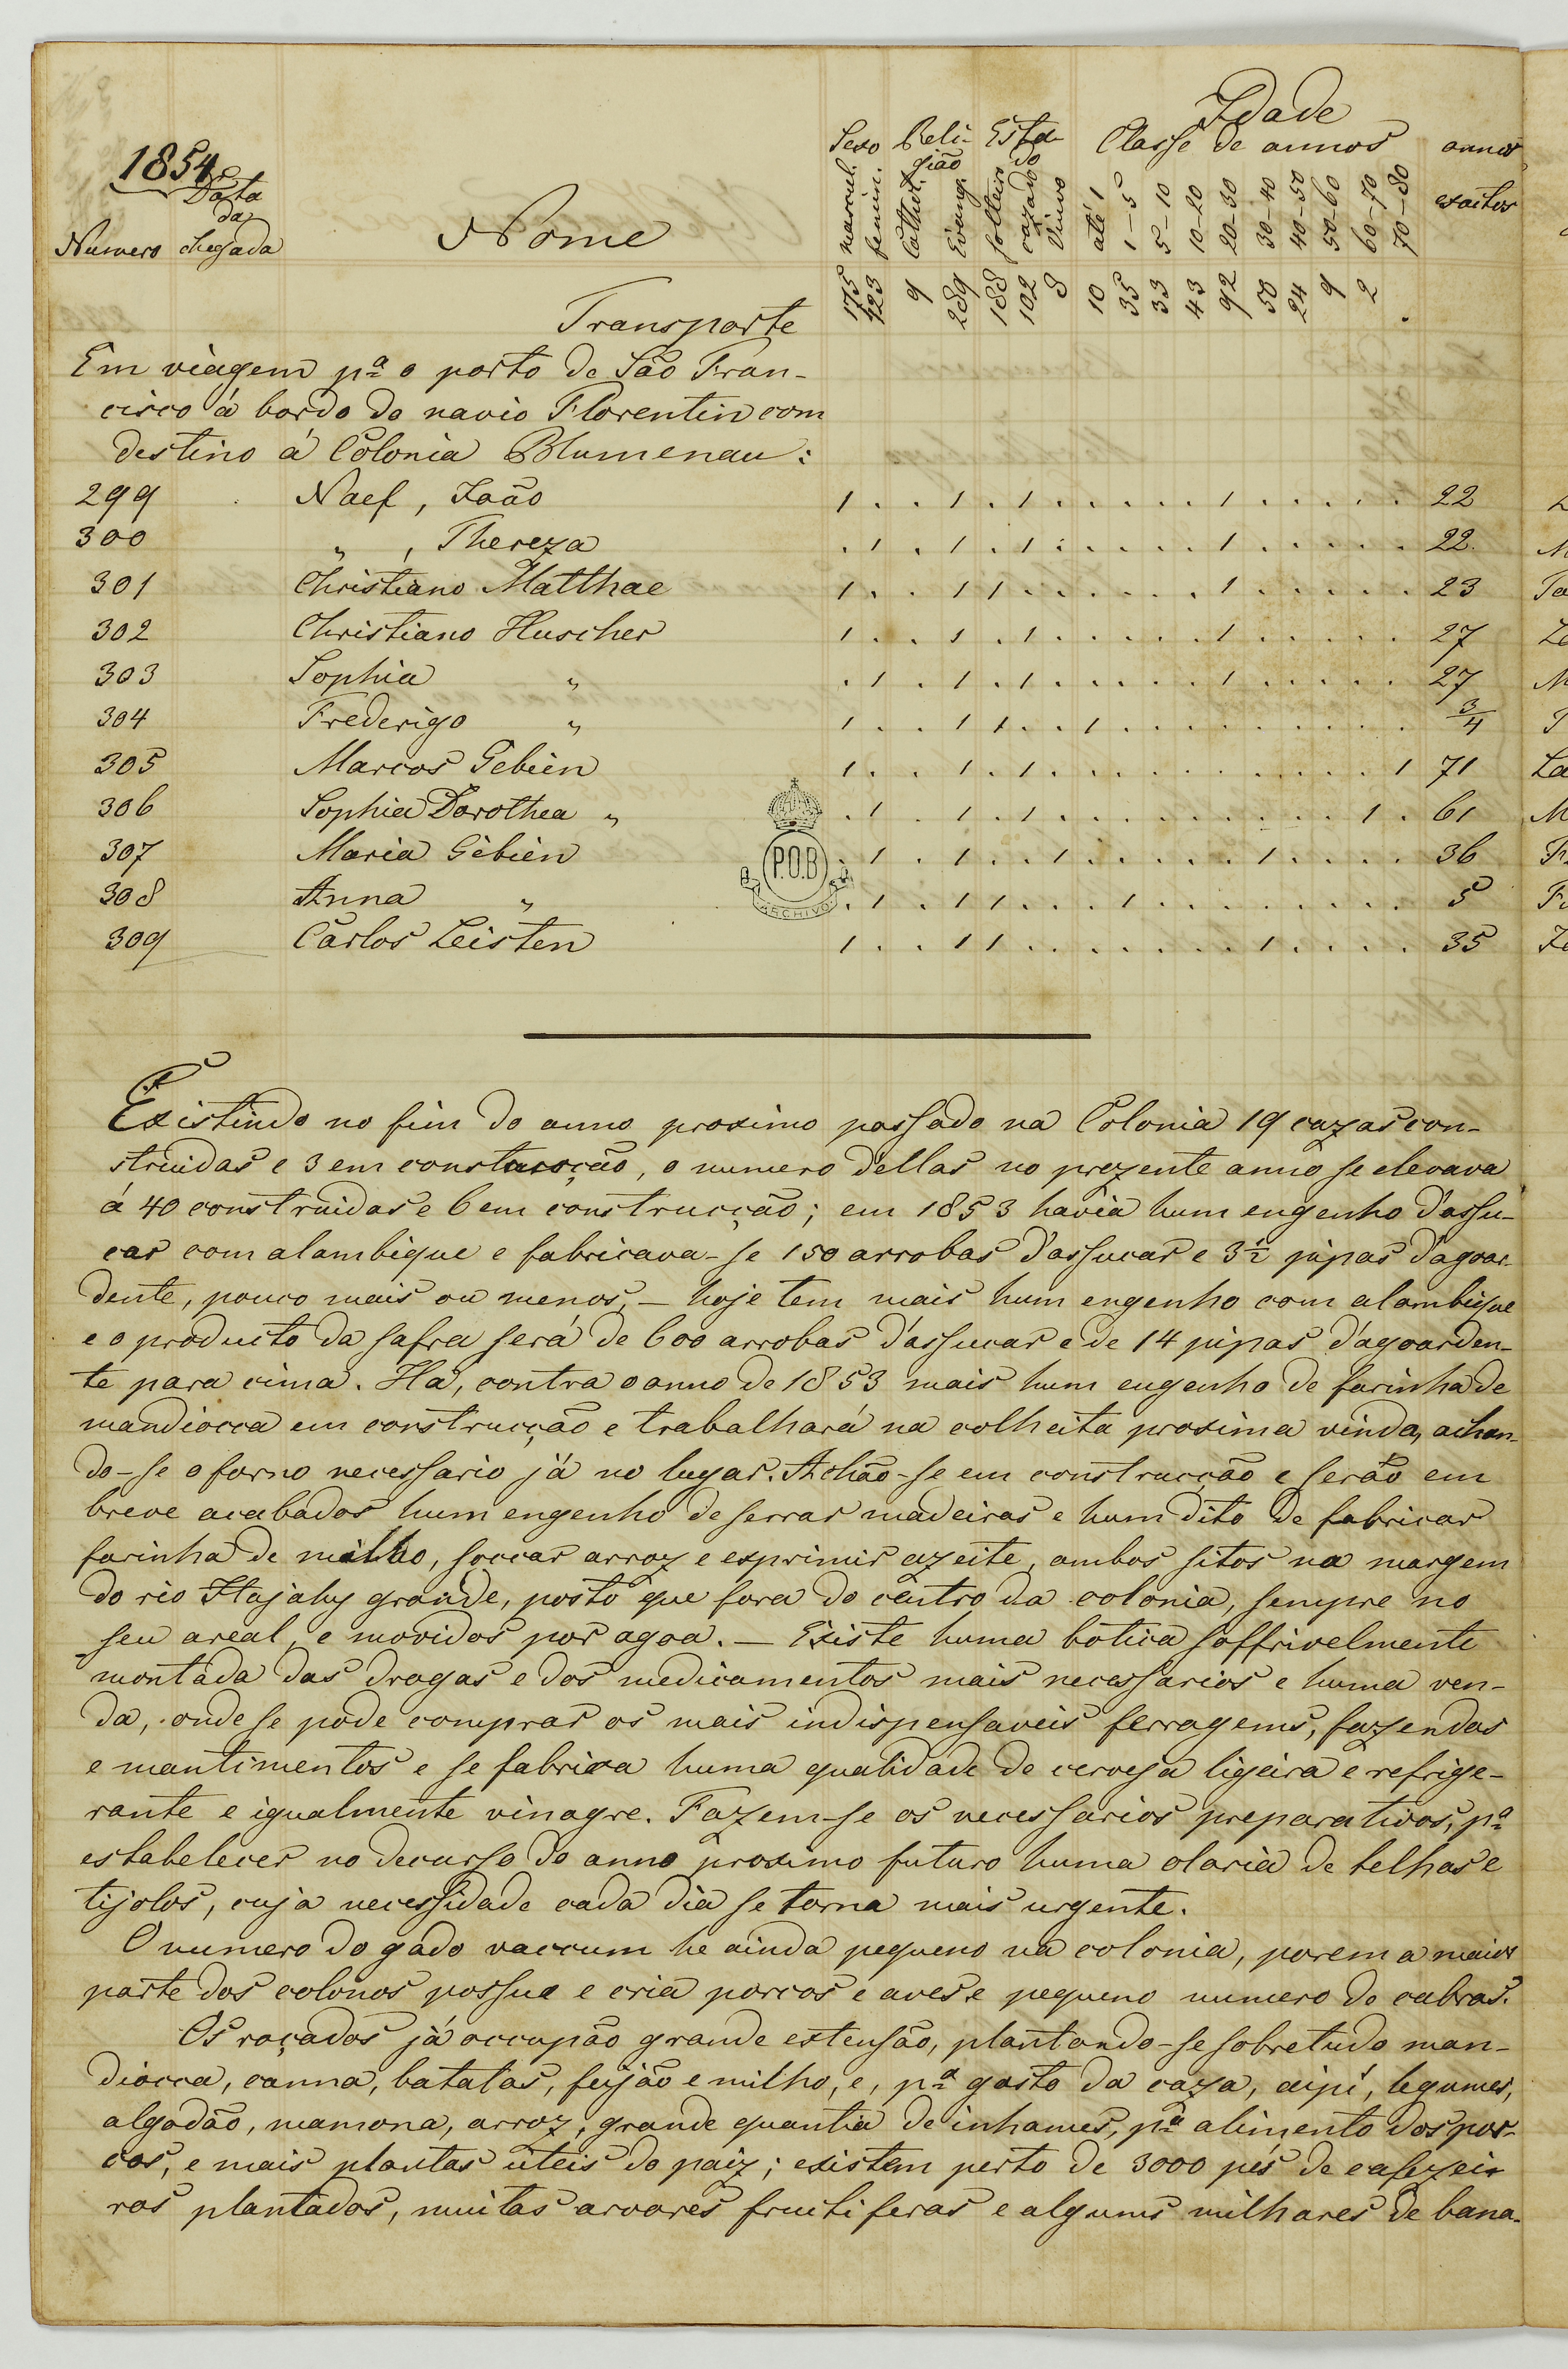 Idade
Sexo Reli- Esta- Classe de annos annos
1854 gião do exactos
Data
da
Numero chegada Nome mascul. femin. Cathol. Evang. solteiro cazado Viuvo até 1 1-5 5-10 10-20 20-30 30-40 40-50 50-60 60-70 70-80
Transporte 175 123 9 289 188 102 8 10 35 33 43 92 50 24 9 2 .
Em viagem pª o porto de São Fran-
cisco á bordo do navio Florentin com
destino á Colonia Blumenau:
299 Naef, João 1 . . 1 . 1 . . . . . 1 . . . . . 22
300 " , Thereza . 1 . 1 . 1 . . . . . 1 . . . . . 22
301 Christiano Matthae 1 . . 1 1 . . . . . . 1 . . . . . 23
302 Christiano Huscher 1 . . 1 . 1 . . . . . 1 . . . . . 27
303 Sophia " . 1 . 1 . 1 . . . . . 1 . . . . . 27
304 Frederigo " 1 . . 1 1 . . 1 . . . . . . . . . 3/4
305 Marcos Gebien 1 . . 1 . 1 . . . . . . . . . . 1 71
306 Sophia Dorothea " . 1 . 1 . 1 . . . . . . . . . 1 . 61
307 Maria Gebien . 1 . 1 . . 1 . . . . . 1 . . . . 36
308 Anna " . 1 . 1 1 . . . 1 . . . . . . . . 5
309 Carlos Leisten 1 . . 1 1 . . . . . . . 1 . . . . 35
P.O.B
ARCHIVO
Existindo no fim do anno proximo passado na Colonia 19 cazas con-
struidas e 3 em construcção, o numero dellas no prezente anno se elevava
á 40 construidas e 6 em construcção; em 1853 havia hum engenho d'assu-
car com alambique e fabricava-se 150 arrobas d'assucar e 3½ pipas d'agoar-
dente, pouco mais ou menos, — hoje tem mais hum engenho com alambique
e o producto da safra será de 600 arrobas d'assucar e de 14 pipas d'agoarden-
te para cima. Ha, contra o anno de 1853 mais hum engenho de farinha de
mandiocca em construcção e trabalhará na colheita proxima vinda, achan-
do-se o forno necessario já no lugar. Achão-se em construcção e serão em
breve acabados hum engenho de serrar madeiras e hum dito de fabricar
farinha de milho, soccar arroz e exprimir azeite, ambos sitos na margem
do rio Itajahy grande, posto que fora do centro da colonia, sempre no
seu areal, e movidos por agoa. — Existe huma botica soffrivelmente
montada das drogas e dos medicamentos mais necessarios e huma ven-
da, onde se pode comprar os mais indispensaveis ferragems, fazendas
e mantimentos e se fabrica huma qualidade de cerveja ligeira e refrige-
rante e igualmente vinagre. Fazem-se os necessarios preparativos, pª
estabelecer no decurso do anno proximo futuro huma olaria de telhas e
tijolos, cuja necessidade cada dia se torna mais urgente.
O numero do gado vaccum he ainda pequeno na colonia, porem a maior
parte dos colonos possue e cria porcos e aves e pequeno numero de cabras.
Os roçados já occupão grande extensão, plantando-se sobretudo man-
diocca, canna, batatas, feijão e milho, e, pª gasto da caza, aipi, legumes,
algodão, mamona, arroz, grande quantia de inhames, pª alimento dos por-
cos, e mais plantas uteis do paiz; existem perto de 3000 pés de cafezei-
ros plantados, muitas arvores fructiferas e algums milhares de bana-